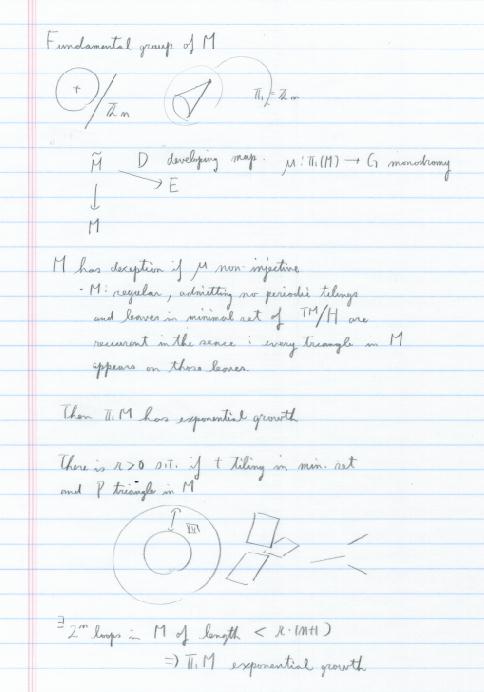 Fundamental group of M
+ / ℤm π₁ = ℤm
M̃ D developing map. μ: π₁(M) → G monodromy
→ E
↓
M
M has deception if μ non-injective
- M: regular, admitting no periodic tilings
and leaves in minimal set of TM/H are
recurrent in the sence : every triangle in M
appears on those leaves.
Then π₁M has exponential growth
There is r>0 s.t. if t tiling in min. set
and P triangle in M
∃ 2ⁿ loops in M of length < r·(n+1)
⇒ π₁M exponential growth